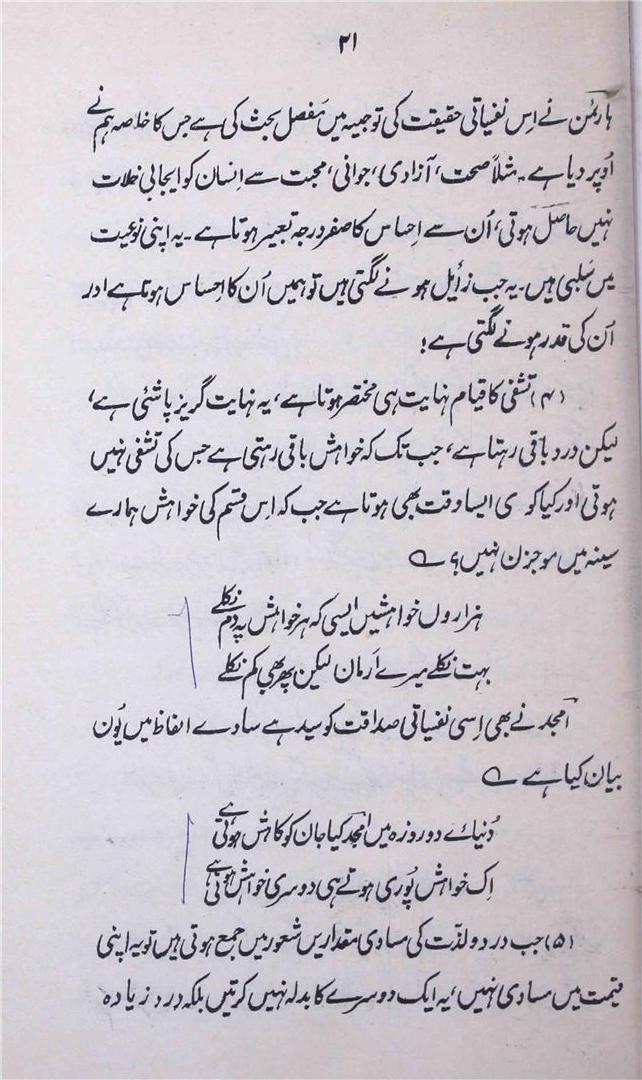 ۲۱
ہارٹمن نے اِس نفسیاتی حقیقت کی توجیہ میں مفصل بحث کی ہے جس کا خلاصہ ہم نے
اُوپر دیا ہے۔ مثلاً صحت، آزادی، جوانی، محبت سے اِنسان کو ایجابی
نہیں حاصل ہوتی، اُن سے اِحساس کا صفر درجہ تعبیر ہوتا ہے۔ یہ اپنی نوعیت
میں سَلبی ہیں۔ یہ جب زائل ہونے لگتی ہیں تو ہمیں اُن کا اِحساس ہوتا ہے اور
اُن کی قدر ہونے لگتی ہے؛
(۴) تشفی کا قیام نہایت ہی مختصر ہوتا ہے، یہ نہایت گریز پا شئی ہے،
لیکن درد باقی رہتا ہے، جب تک کہ خواہش باقی رہتی ہے جس کی تشفی نہیں
ہوتی اور کیا کوئی ایسا وقت بھی ہوتا ہے جب کہ اِس قسم کی خواہش ہمارے
سینہ میں موجزن نہیں؟ ؎
ہزاروں خواہشیں ایسی کہ ہر خواہش پہ دَم نکلے
بہت نکلے میرے اَرمان لیکن پھر بھی کم نکلے
امجد نے بھی اِسی نفسیاتی صداقت کو سیدھے سادے الفاظ میں یُوں
بیان کیا ہے ؎
دُنیائے دو روزہ میں امجد کیا جان کو کاہش ہوتی ہے
اِک خواہش پُوری ہوتے ہی دوسری خواہش ہوتی ہے
(۵) جب درد و لذّت کی مساوی مقداریں شعور میں جمع ہوتی ہیں تو یہ اپنی
قیمت میں مساوی نہیں، یہ ایک دوسرے کا بدلہ نہیں کرتیں بلکہ درد زیادہ